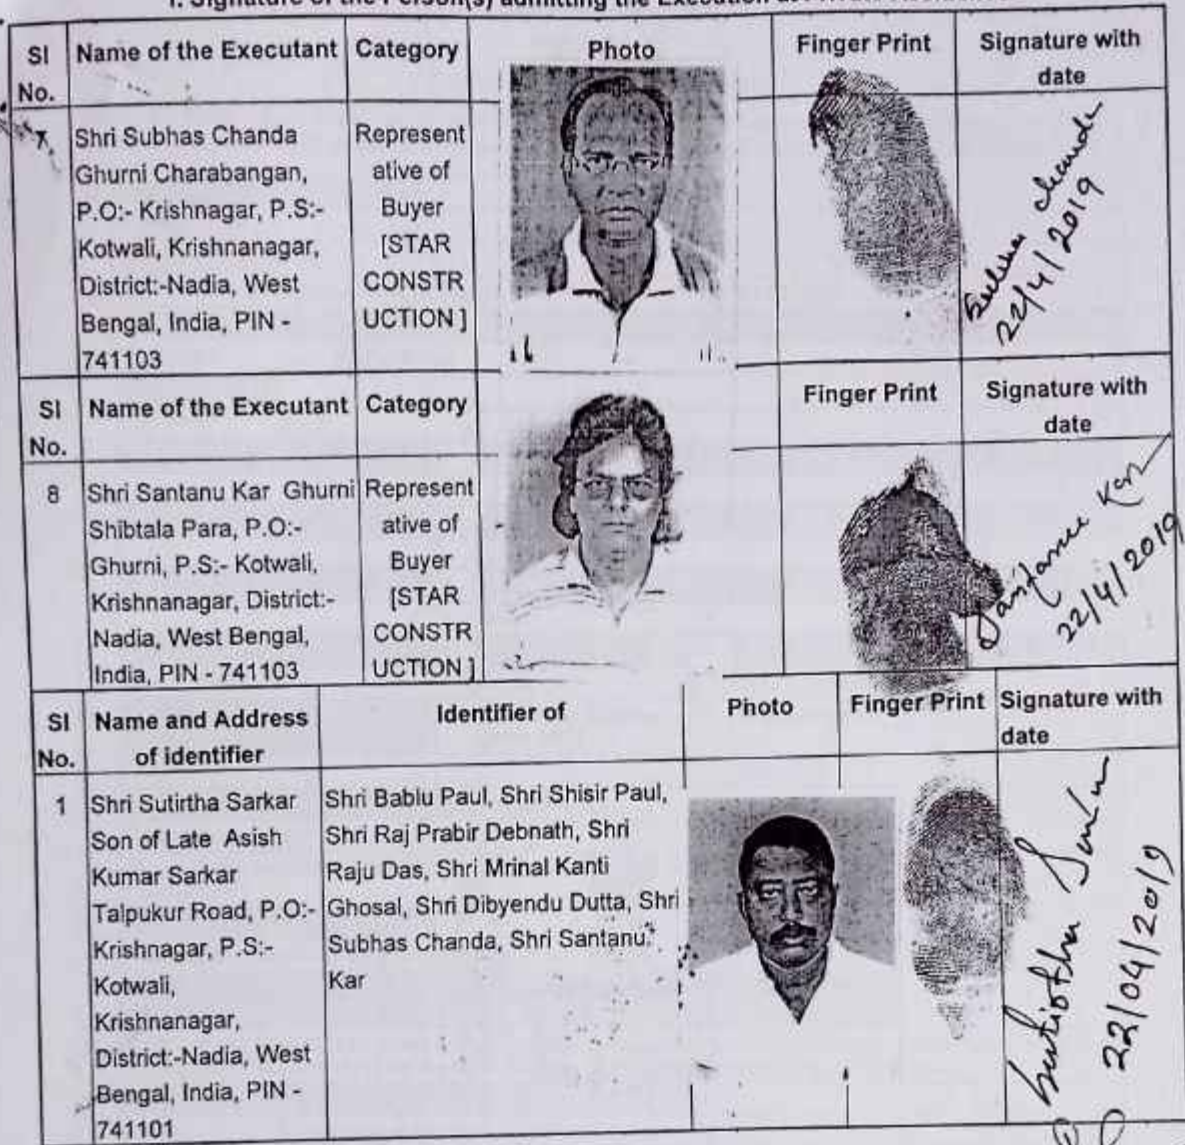 I. Signature of the Person(s) admitting the Execution at
Sl No. Name of the Executant Category Photo Finger Print Signature with date
7 Shri Subhas Chanda
Ghurni Charabangan,
P.O:- Krishnagar, P.S:-
Kotwali, Krishnanagar,
District:-Nadia, West
Bengal, India, PIN -
741103
Represent
ative of
Buyer
[STAR
CONSTR
UCTION ]
Subhas Chanda
22/4/2019
Sl No. Name of the Executant Category Finger Print Signature with date
8 Shri Santanu Kar Ghurni
Shibtala Para, P.O:-
Ghurni, P.S:- Kotwali,
Krishnanagar, District:-
Nadia, West Bengal,
India, PIN - 741103
Represent
ative of
Buyer
[STAR
CONSTR
UCTION ]
Santanu Kar
22/4/2019
Sl No. Name and Address of identifier Identifier of Photo Finger Print Signature with date
1 Shri Sutirtha Sarkar
Son of Late Asish
Kumar Sarkar
Talpukur Road, P.O:-
Krishnagar, P.S:-
Kotwali,
Krishnanagar,
District:-Nadia, West
Bengal, India, PIN -
741101
Shri Bablu Paul, Shri Shisir Paul,
Shri Raj Prabir Debnath, Shri
Raju Das, Shri Mrinal Kanti
Ghosal, Shri Dibyendu Dutta, Shri
Subhas Chanda, Shri Santanu
Kar
Sutirtha Sarkar
22/04/2019